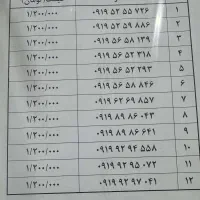 ۱/۲۰۰/۰۰۰ ۰۹۱۹ ۵۲ ۵۵ ۷۲۶ ۱
۱/۲۰۰/۰۰۰ ۰۹۱۹ ۵۲ ۵۹ ۸۸۶ ۲
۱/۲۰۰/۰۰۰ ۰۹۱۹ ۵۶ ۵۸ ۱۳۹ ۳
۱/۲۰۰/۰۰۰ ۰۹۱۹ ۵۶ ۵۲ ۳۱۸ ۴
۱/۲۰۰/۰۰۰ ۰۹۱۹ ۵۶ ۵۲ ۲۹۳ ۵
۱/۲۰۰/۰۰۰ ۰۹۱۹ ۵۶ ۵۸ ۸۴۶ ۶
۱/۲۰۰/۰۰۰ ۰۹۱۹ ۶۲ ۶۹ ۸۵۷ ۷
۱/۲۰۰/۰۰۰ ۰۹۱۹ ۸۹ ۸۶ ۰۴۳ ۸
۱/۲۰۰/۰۰۰ ۰۹۱۹ ۸۹ ۸۶ ۶۴۱ ۹
۱/۲۰۰/۰۰۰ ۰۹۱۹ ۹۲ ۹۴ ۵۵۸ ۱۰
۱/۲۰۰/۰۰۰ ۰۹۱۹ ۹۲ ۹۵ ۰۷۲ ۱۱
۱/۲۰۰/۰۰۰ ۰۹۱۹ ۹۲ ۹۷ ۰۴۱ ۱۲